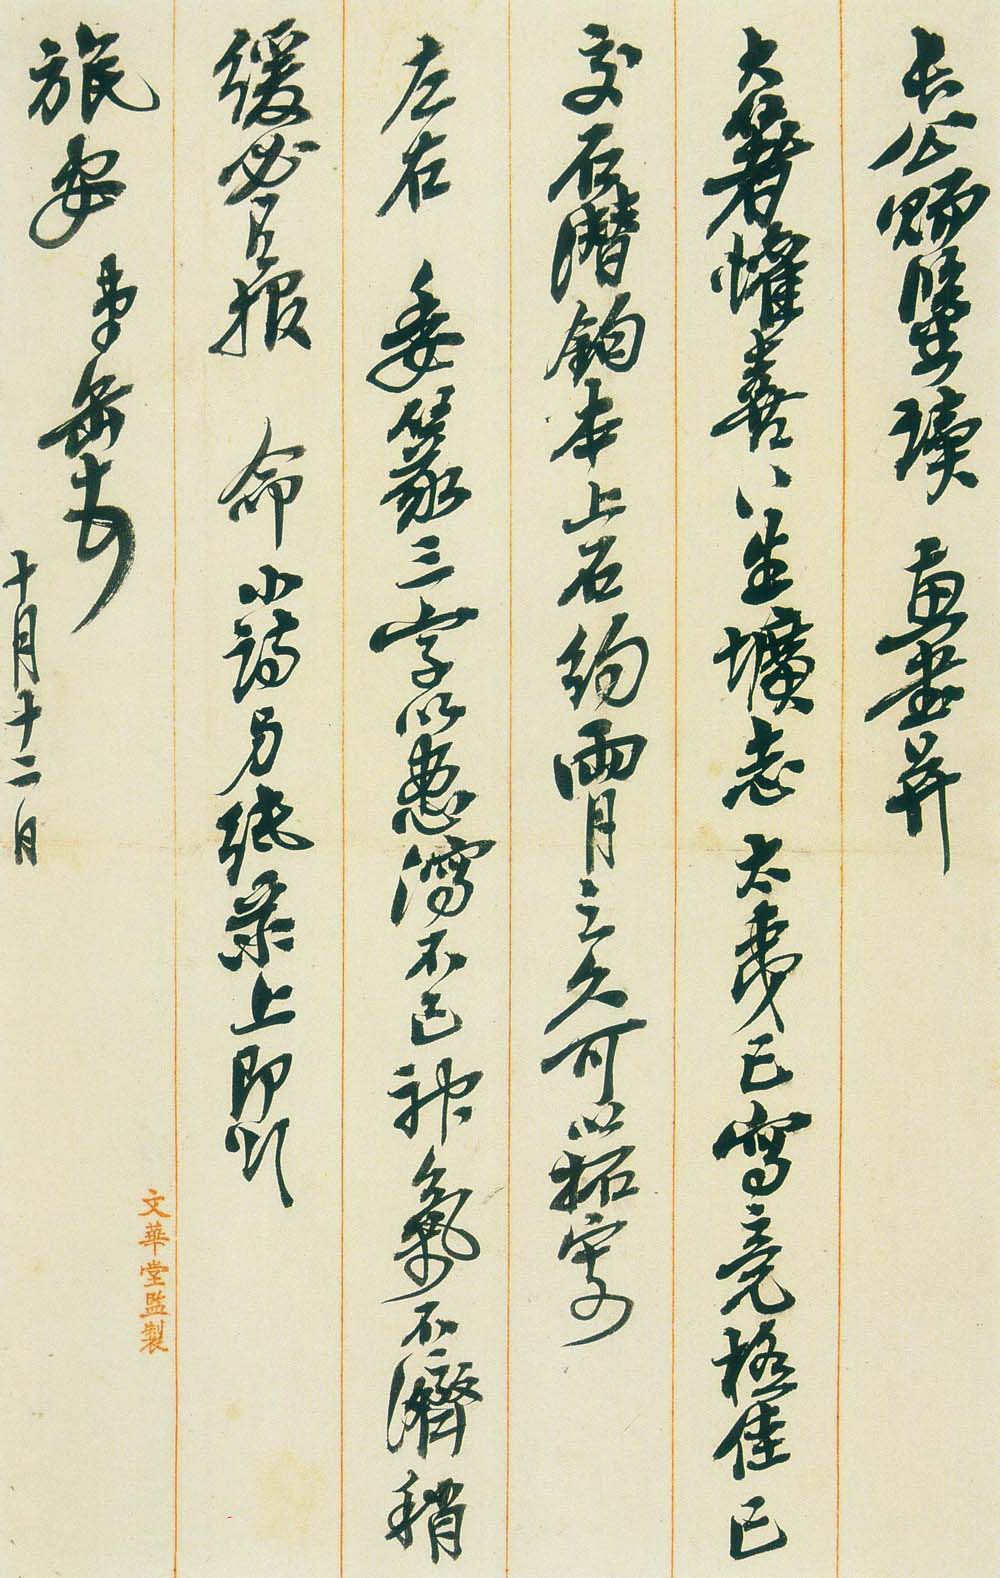 长公賜鑒讀 惠書并
大著懽喜〻生壙志 太夷已寫竟極佳已
交石潛鉤本上石約兩月之久可以拓寄
左右 委篆三字以患瀉不已神氣不濟稍
緩必有報 命小詩另紙錄上即頌
旅安 弟缶頓首
十月十二日
文華堂監製